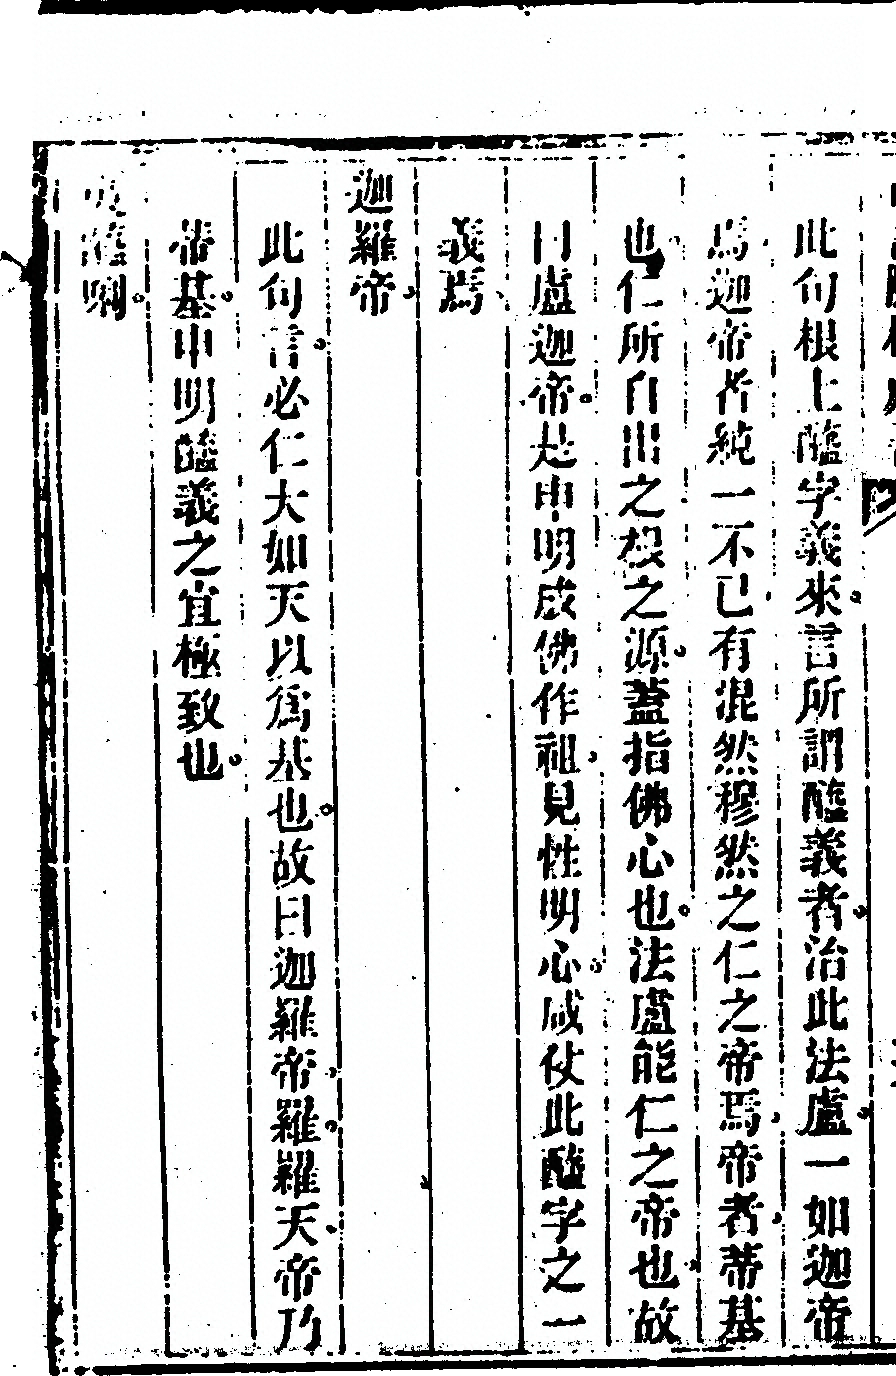 此句根上醯字義來言所謂醯義者治此法盧一如迦帝
焉迦帝者純一不已有混然穆然之仁之帝焉帝者蒂基
也仁所自出之根之源蓋指佛心也法盧能仁之帝也故
曰盧迦帝是申明成佛作祖見性明心咸仗此醯字之一
義焉
迦羅帝
此句言必仁大如天以爲基也故曰迦羅帝羅羅天帝乃
蒂基申明醯義之宜極致也
醯唎